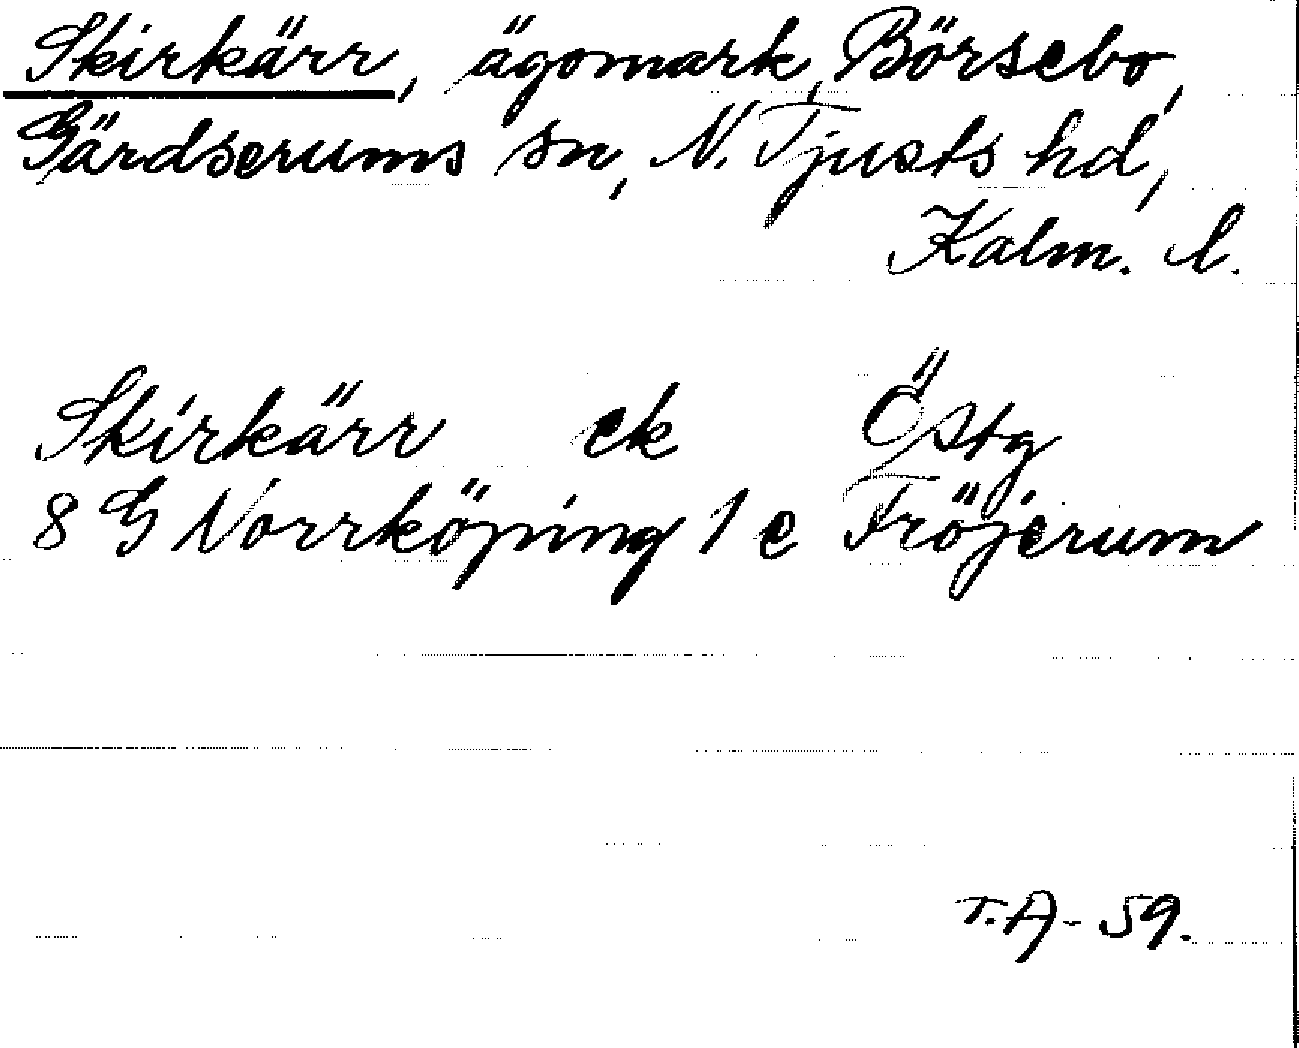 Skirkärr, ägomark, Börsebo,
Gärdserums sn, N. Tjusts hd,
Kalm. l.
Skirkärr ek Östg
8 G Norrköping 1 e Fröjerum
T.A - 59.